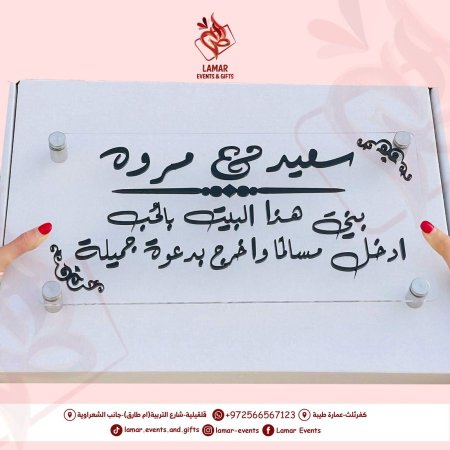 LAMAR
EVENTS & GIFTS
سعيد مروه
بني هذا البيت بالحب
ادخل مسالماً واخرج بدعوة جميلة
كفرثلث-عمارة طيبة
+972566567123
قلقيلية-شارع التربية(ام طارق)-جانب الشعراوية
lamar.events.and.gifts
lamar-events
Lamar Events